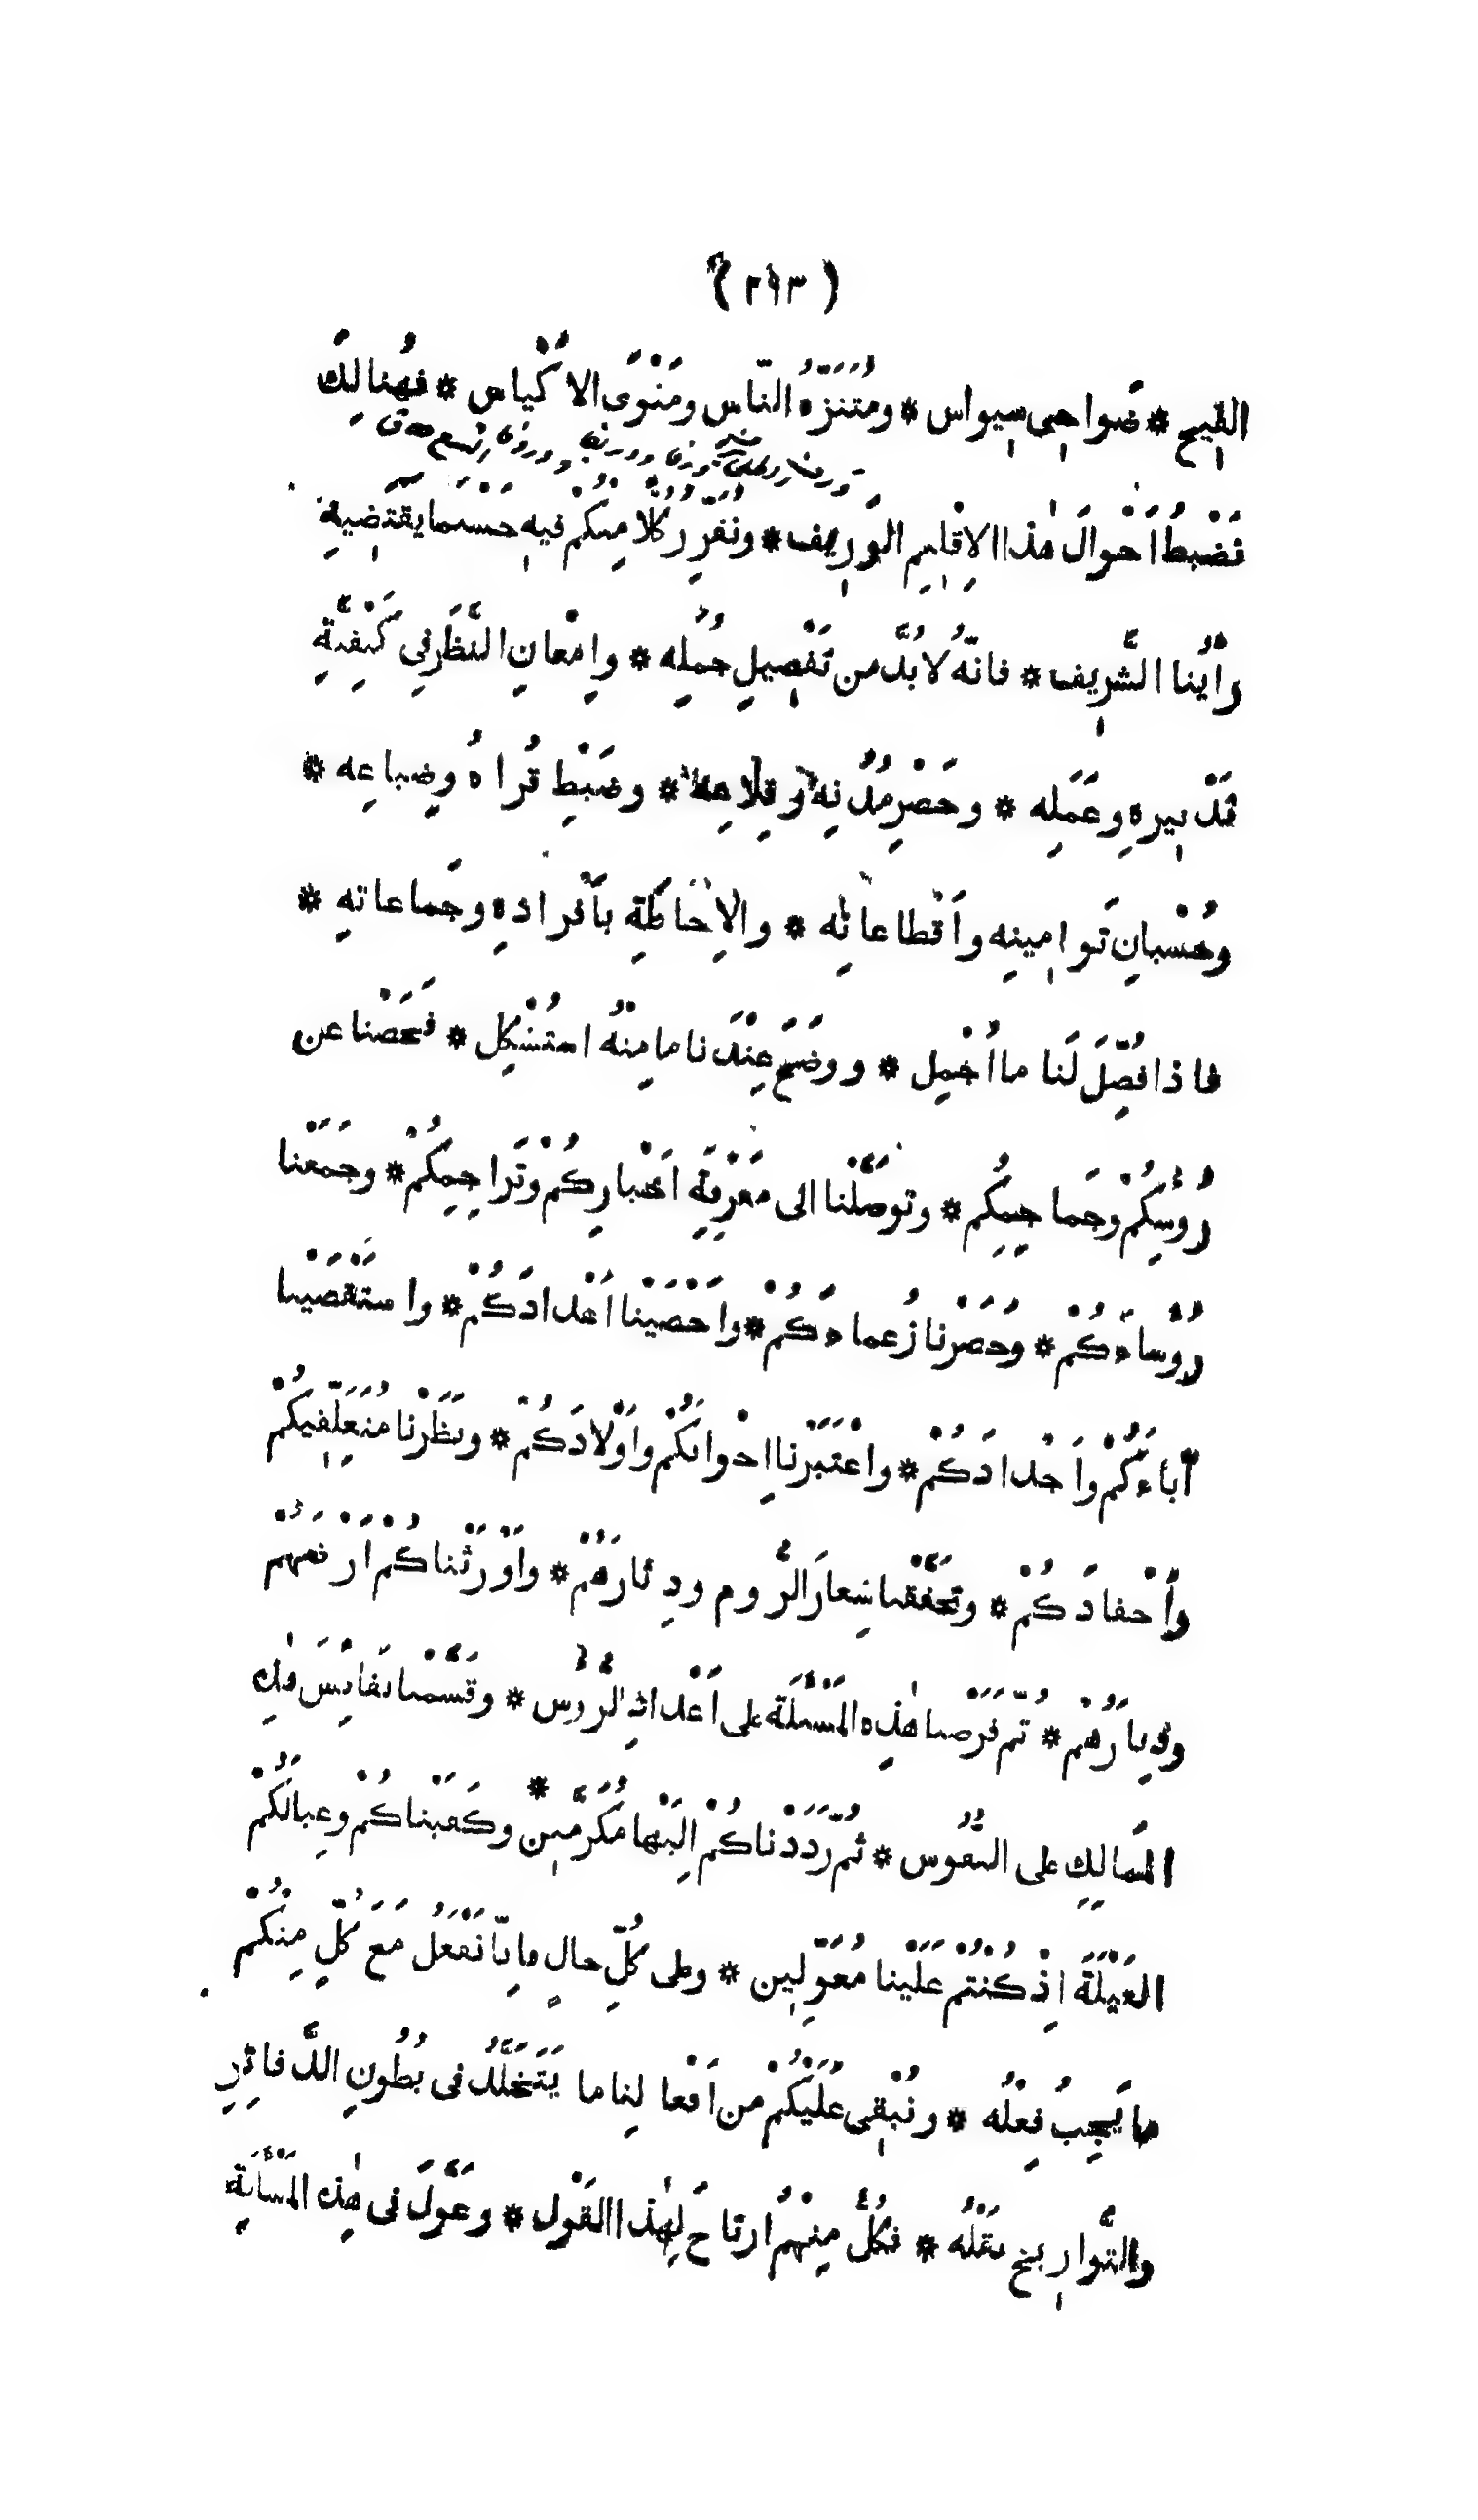 (٢٩٣)
الفيح * ضَواحِى سِيواس * ومُتَنَزَّهُ النّاس ومَثْوَى الاَكْياس * فهُنالِكَ
نَضْبطُ اَحْوالَ هٰذا الاِقْلِيمِ الوَرِيف * ونُقَرِّرُ كُلًّا مِنكُم فيهِ حَسْبَما يَقْتَضِيهِ
رأيُنا الشَّرِيف * فانّهُ لابُدَّ من تَفْصِيلِ جُمَلِه * وإمْعانِ النَّظَرِ فى كَيْفِيَّةِ
تَدْبِيرِهِ وعَمَلِه * وحَصْرِ مُدُنِه وقِلاعِه * وضَبْطِ قُراهُ وضِياعِه *
وحُسْبانِ تَوامِينِه واَقْطاعاتِه * والاِحَاطَةِ بأَفْرادِهِ وجَماعاتِهِ *
فاذا فُصِّلَ لَنا ما اُجْمِل * ووضَحَ عِنْدَنا ما مِنْهُ اسْتُشْكِل * فَحَصْنا عن
رُؤُسِكُمْ وجَماجِمِكُم * وتوصَّلْنا الى مَعْرِفَةِ اَخْبارِكُمْ وتَراجِمِكُمْ * وجَمَعْنا
رُؤَساءَكُمْ * وحَصَرْنا زُعماءَكُمْ * واَحْصَيْنا اَعْدادَكُمْ * واستَقْصَيْنا
آباءَكُمْ واَجْدادَكُمْ * واعْتَبَرْنا اِخْوانَكُمْ واَوْلادَكُمْ * ونَظَرْنا مُتَعَلِّقِيكُمْ
واَحْفادَكُمْ * وتحَقَّقْنا شِعارَ الرُّومِ ودِثارَهُمْ * واَوْرَثْناكُمْ اَرْضَهُمْ
ودِيارَهُمْ * ثُمّ فَرَضْنا هٰذِهِ المَسْئَلَة على اَعْدادِ الرُّؤُس * وقَسَّمْنا نَفائِسَ تِلك
المَمالِكِ على النُّفُوس * ثُمّ رَدَدْناكُمْ اِلَيْها مُكَرَّمِين * وكَفَيْناكُمْ وعِيالَكُمْ
العَيْلَةَ اِذْ كُنْتُمْ عَلَيْنا مُعَوِّلِين * وعلى كُلِّ حالٍ فاِنّا نَفْعَلُ مَعَ كُلٍّ مِنْكُمْ
ما يَجِبُ فِعْلُه * ونُبْقِى عَلَيْكُمْ من اَفْعالِنا ما يَتَخَلَّدُ فى بُطُونِ الدَّفاتِرِ
والتَّوارِيخ نَقْلُه * فكُلٌّ مِنْهُم ارتاحَ لِهٰذا القَوْل * وعَوَّلَ فى هٰذِه المَسْأَلةِ